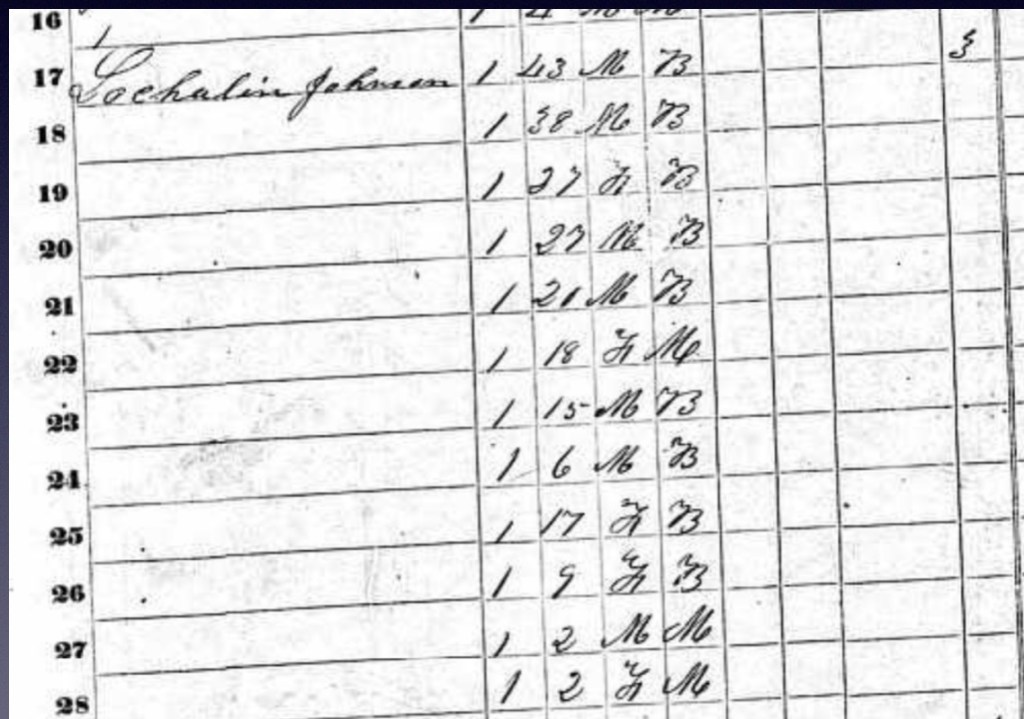 16 1 4 M M
17 Lochalin Johnson 1 43 M B 3
18 1 38 M B
19 1 27 F B
20 1 27 M B
21 1 21 M B
22 1 18 F M
23 1 15 M B
24 1 6 M B
25 1 17 F B
26 1 9 F B
27 1 2 M M
28 1 2 F M